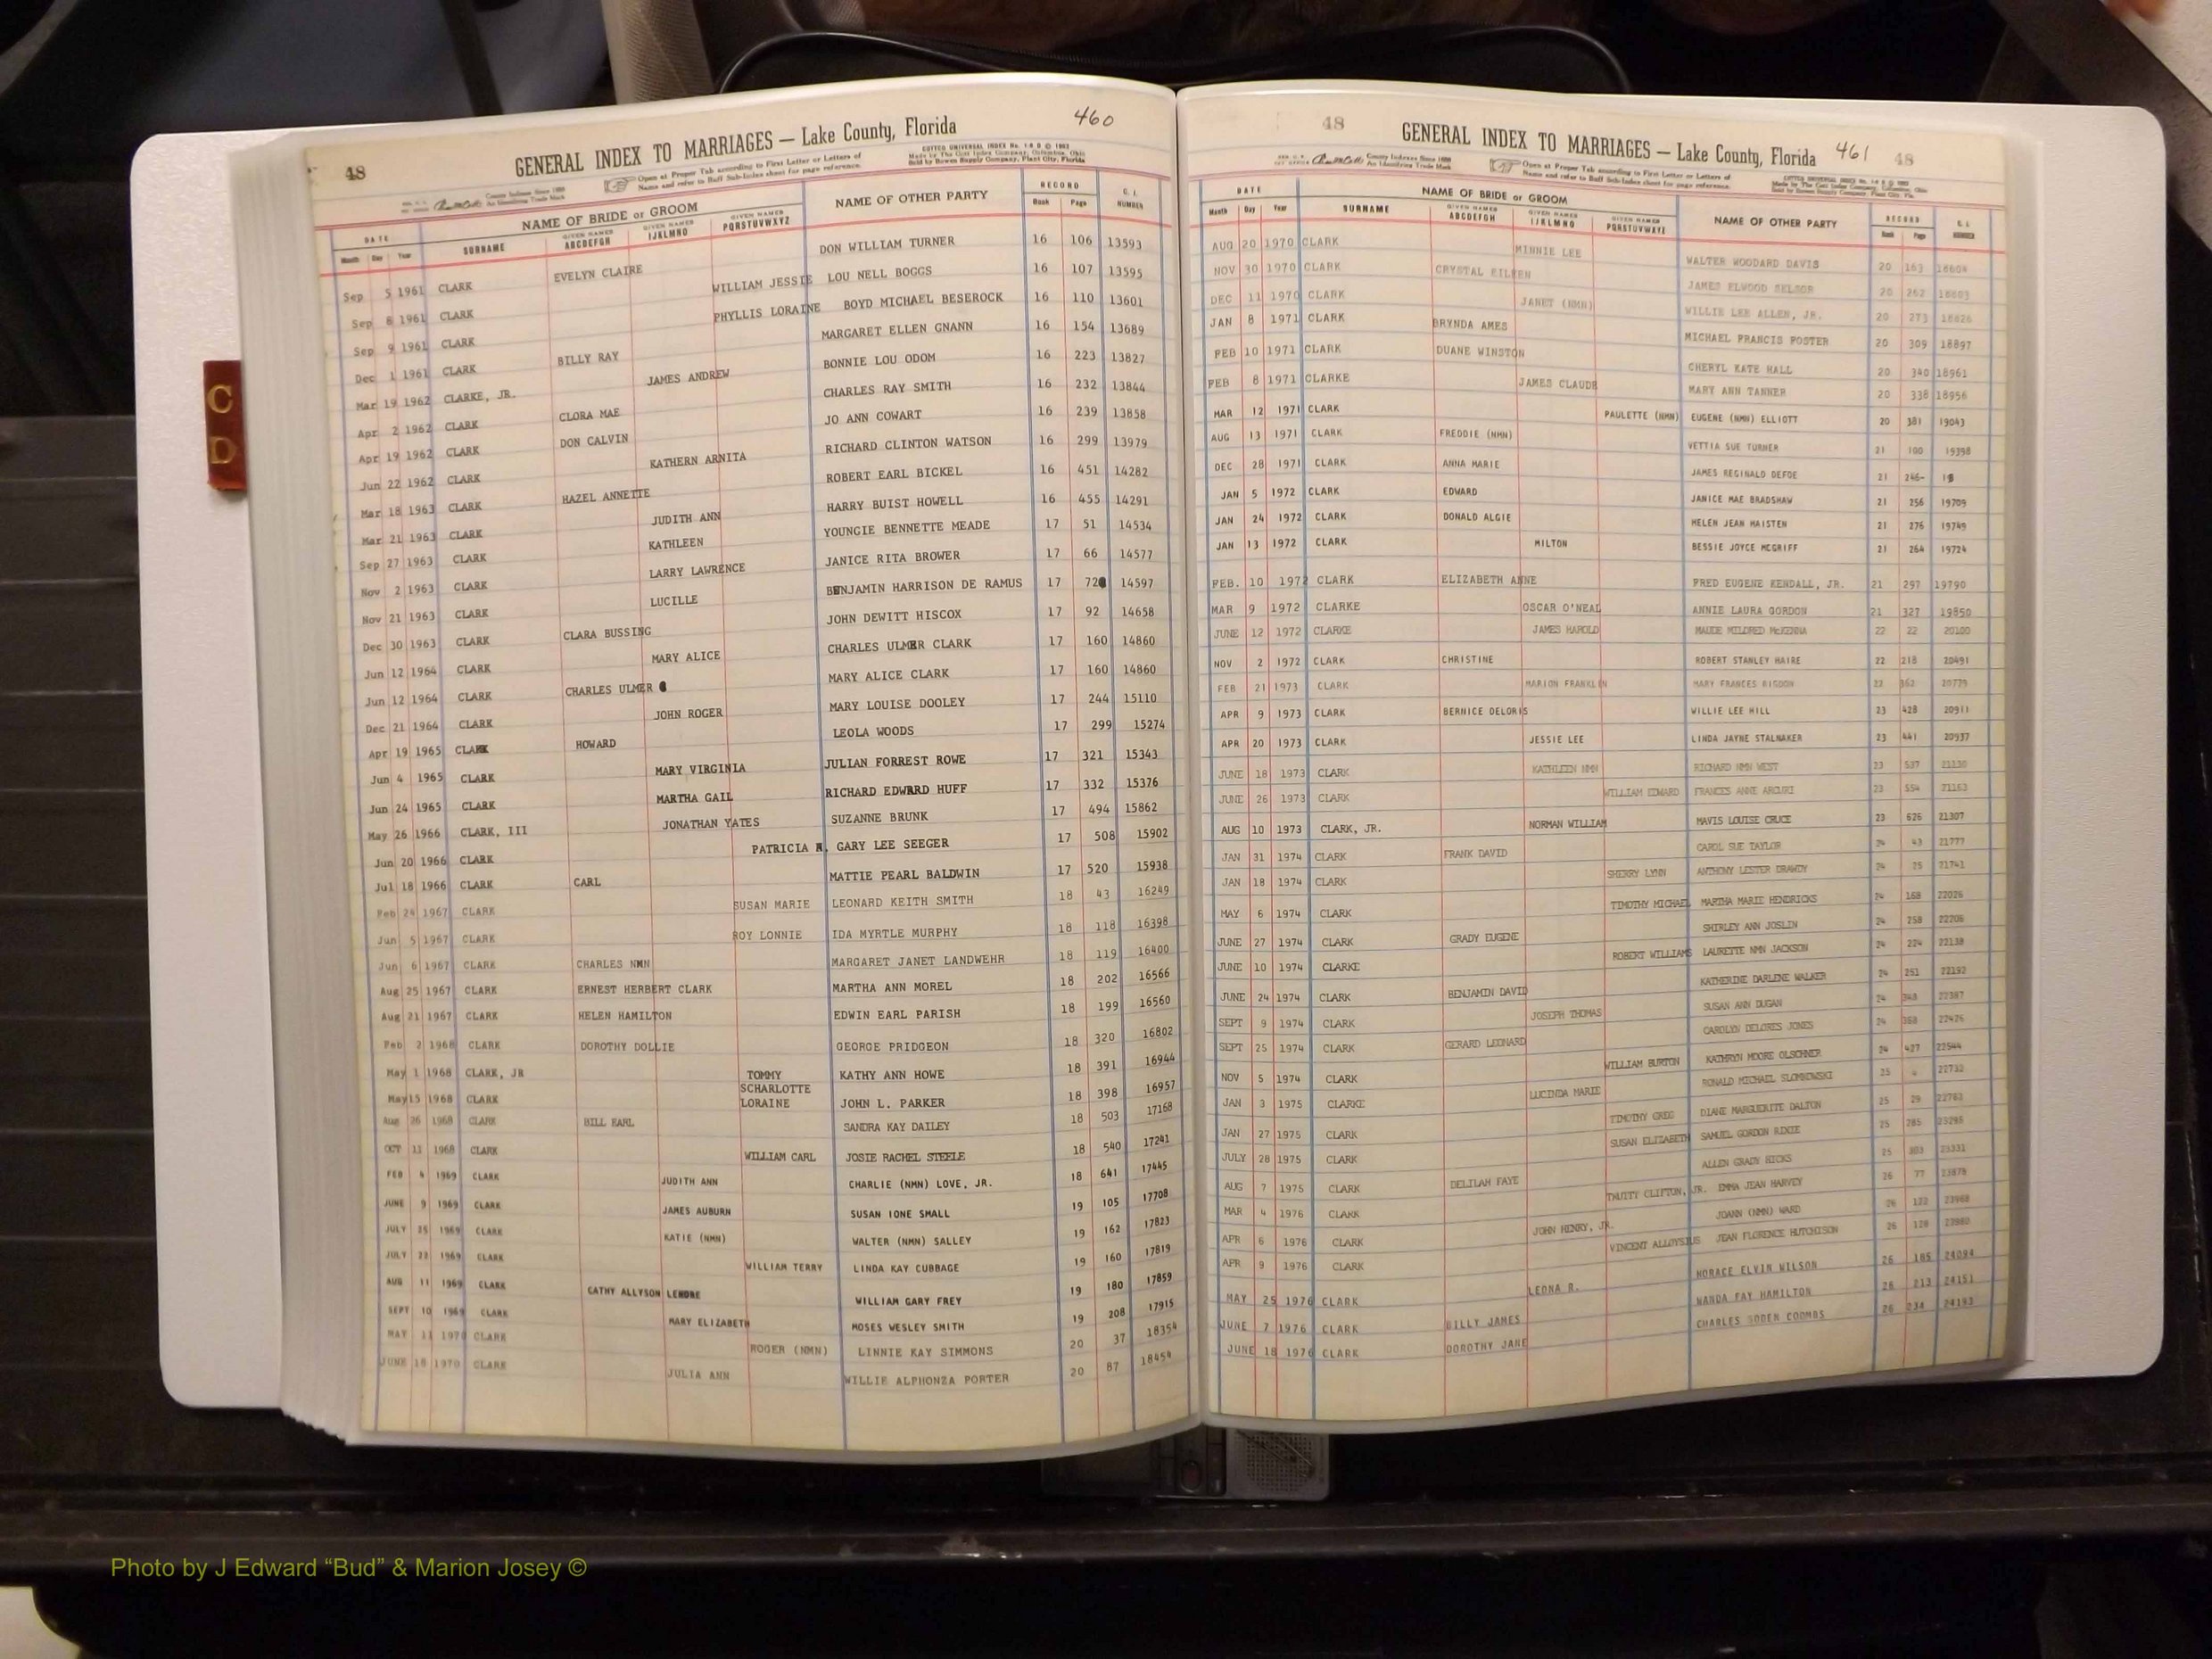 48 GENERAL INDEX TO MARRIAGES — Lake County, Florida 460
County Indexes Since 1888 An Identifying Trade Mark
Open at Proper Tab according to First Letter or Letters of Name and refer to Buff Sub-Index sheet for page reference.
COTTCO UNIVERSAL INDEX
Made by The Cott Index Company, Columbus, Ohio
Sold by Bowen Supply Company, Plant City, Florida
DATE NAME OF BRIDE or GROOM NAME OF OTHER PARTY RECORD G. I. NUMBER
Month Day Year SURNAME GIVEN NAMES ABCDEFGH GIVEN NAMES IJKLMNO GIVEN NAMES PQRSTUVWXYZ Book Page
Sep 5 1961 CLARK EVELYN CLAIRE DON WILLIAM TURNER 16 106 13593
Sep 8 1961 CLARK WILLIAM JESSIE LOU NELL BOGGS 16 107 13595
Sep 9 1961 CLARK PHYLLIS LORAINE BOYD MICHAEL BESEROCK 16 110 13601
Dec 1 1961 CLARK BILLY RAY MARGARET ELLEN GNANN 16 154 13689
Mar 19 1962 CLARKE, JR. JAMES ANDREW BONNIE LOU ODOM 16 223 13827
Apr 2 1962 CLARK CLORA MAE CHARLES RAY SMITH 16 232 13844
Apr 19 1962 CLARK DON CALVIN JO ANN COWART 16 239 13858
Jun 22 1962 CLARK KATHERN ARNITA RICHARD CLINTON WATSON 16 299 13979
Mar 18 1963 CLARK HAZEL ANNETTE ROBERT EARL BICKEL 16 451 14282
Mar 21 1963 CLARK JUDITH ANN HARRY BUIST HOWELL 16 455 14291
Sep 27 1963 CLARK KATHLEEN YOUNGIE BENNETTE MEADE 17 51 14534
Nov 2 1963 CLARK LARRY LAWRENCE JANICE RITA BROWER 17 66 14577
Nov 21 1963 CLARK LUCILLE BENJAMIN HARRISON DE RAMUS 17 72 14597
Dec 30 1963 CLARK CLARA BUSSING JOHN DEWITT HISCOX 17 92 14658
Jun 12 1964 CLARK MARY ALICE CHARLES ULMER CLARK 17 160 14860
Jun 12 1964 CLARK CHARLES ULMER MARY ALICE CLARK 17 160 14860
Dec 21 1964 CLARK JOHN ROGER MARY LOUISE DOOLEY 17 244 15110
Apr 19 1965 CLARK HOWARD LEOLA WOODS 17 299 15274
Jun 4 1965 CLARK MARY VIRGINIA JULIAN FORREST ROWE 17 321 15343
Jun 24 1965 CLARK MARTHA GAIL RICHARD EDWARD HUFF 17 332 15376
May 26 1966 CLARK, III JONATHAN YATES SUZANNE BRUNK 17 494 15862
Jun 20 1966 CLARK PATRICIA GARY LEE SEEGER 17 508 15902
Jul 18 1966 CLARK CARL MATTIE PEARL BALDWIN 17 520 15938
Feb 24 1967 CLARK SUSAN MARIE LEONARD KEITH SMITH 18 43 16249
Jun 5 1967 CLARK ROY LONNIE IDA MYRTLE MURPHY 18 118 16398
Jun 6 1967 CLARK CHARLES NMN MARGARET JANET LANDWEHR 18 119 16400
Aug 25 1967 CLARK ERNEST HERBERT CLARK MARTHA ANN MOREL 18 202 16566
Aug 21 1967 CLARK HELEN HAMILTON EDWIN EARL PARISH 18 199 16560
Feb 2 1968 CLARK DOROTHY DOLLIE GEORGE PRIDGEON 18 320 16802
May 1 1968 CLARK, JR TOMMY KATHY ANN HOWE 18 391 16944
May 15 1968 CLARK SCHARLOTTE LORAINE JOHN L. PARKER 18 398 16957
Aug 26 1968 CLARK BILL EARL SANDRA KAY DAILEY 18 503 17168
OCT 11 1968 CLARK WILLIAM CARL JOSIE RACHEL STEELE 18 540 17241
FEB 4 1969 CLARK JUDITH ANN CHARLIE (NMN) LOVE, JR. 18 641 17445
JUNE 9 1969 CLARK JAMES AUBURN SUSAN IONE SMALL 19 105 17708
JULY 25 1969 CLARK KATIE (NMN) WALTER (NMN) SALLEY 19 162 17823
JULY 23 1969 CLARK WILLIAM TERRY LINDA KAY CUBBAGE 19 160 17819
AUG 11 1969 CLARK CATHY ALLYSON LENORE WILLIAM GARY FREY 19 180 17859
SEPT 10 1969 CLARK MARY ELIZABETH MOSES WESLEY SMITH 19 208 17915
MAY 11 1970 CLARK ROGER (NMN) LINNIE KAY SIMMONS 20 37 18354
JUNE 18 1970 CLARK JULIA ANN WILLIE ALPHONZA PORTER 20 87 18454
48 GENERAL INDEX TO MARRIAGES — Lake County, Florida 461 48
County Indexes Since 1888 An Identifying Trade Mark
Open at Proper Tab according to First Letter or Letters of Name and refer to Buff Sub-Index sheet for page reference.
DATE NAME OF BRIDE or GROOM NAME OF OTHER PARTY RECORD G. I. NUMBER
Month Day Year SURNAME GIVEN NAMES ABCDEFGH GIVEN NAMES IJKLMNO GIVEN NAMES PQRSTUVWXYZ Book Page
AUG 20 1970 CLARK MINNIE LEE WALTER WOODARD DAVIS 20 163 18604
NOV 30 1970 CLARK CRYSTAL EILEEN JAMES ELWOOD NELSON 20 262 18803
DEC 11 1970 CLARK JANET (NMN) WILLIE LEE ALLEN, JR. 20 273 18826
JAN 8 1971 CLARK BRYNDA AMES MICHAEL FRANCIS FOSTER 20 309 18897
FEB 10 1971 CLARK DUANE WINSTON CHERYL KATE HALL 20 340 18961
FEB 8 1971 CLARKE JAMES CLAUDE MARY ANN TANNER 20 338 18956
MAR 12 1971 CLARK PAULETTE (NMN) EUGENE (NMN) ELLIOTT 20 381 19043
AUG 13 1971 CLARK FREDDIE (NMN) VETTIA SUE TURNER 21 100 19398
DEC 28 1971 CLARK ANNA MARIE JAMES REGINALD DEFOE 21 246-
JAN 5 1972 CLARK EDWARD JANICE MAE BRADSHAW 21 256 19709
JAN 24 1972 CLARK DONALD ALGIE HELEN JEAN HAISTEN 21 276 19749
JAN 13 1972 CLARK MILTON BESSIE JOYCE MCGRIFF 21 264 19724
FEB. 10 1972 CLARK ELIZABETH ANNE FRED EUGENE KENDALL, JR. 21 297 19790
MAR 9 1972 CLARKE OSCAR O'NEAL ANNIE LAURA GORDON 21 327 19850
JUNE 12 1972 CLARKE JAMES HAROLD MAUDE MILDRED McKENNA 22 22 20100
NOV 2 1972 CLARK CHRISTINE ROBERT STANLEY HAIRE 22 218 20491
FEB 21 1973 CLARK MARION FRANKLIN MARY FRANCES RIGDON 22 362 20779
APR 9 1973 CLARK BERNICE DELORIS WILLIE LEE HILL 23 428 20911
APR 20 1973 CLARK JESSIE LEE LINDA JAYNE STALNAKER 23 441 20937
JUNE 18 1973 CLARK KATHLEEN NMN RICHARD NMN WEST 23 537 21130
JUNE 26 1973 CLARK WILLIAM EDWARD FRANCES ANNE ARCURI 23 554 21163
AUG 10 1973 CLARK, JR. NORMAN WILLIAM MAVIS LOUISE CRUCE 23 626 21307
JAN 31 1974 CLARK FRANK DAVID CAROL SUE TAYLOR 24 43 21777
JAN 18 1974 CLARK SHERRY LYNN ANTHONY LESTER DRAWDY 24 25 21741
MAY 6 1974 CLARK TIMOTHY MICHAEL MARTHA MARIE HENDRICKS 24 168 22026
JUNE 27 1974 CLARK GRADY EUGENE SHIRLEY ANN JOSLIN 24 258 22206
JUNE 10 1974 CLARKE ROBERT WILLIAMS LAURETTE NMN JACKSON 24 224 22138
JUNE 24 1974 CLARK BENJAMIN DAVID KATHERINE DARLENE WALKER 24 251 22192
SEPT 9 1974 CLARK JOSEPH THOMAS SUSAN ANN DUGAN 24 348 22387
SEPT 25 1974 CLARK GERARD LEONARD CAROLYN DELORES JONES 24 368 22426
NOV 5 1974 CLARK WILLIAM BURTON KATHRYN MOORE OLSCHNER 24 427 22544
JAN 3 1975 CLARKE LUCINDA MARIE RONALD MICHAEL SLOMKOWSKI 25 4 22732
JAN 27 1975 CLARK TIMOTHY GREG DIANE MARGUERITE DALTON 25 29 22783
JULY 28 1975 CLARK SUSAN ELIZABETH SAMUEL GORDON RIXIE 25 285 23295
AUG 7 1975 CLARK DELILAH FAYE ALLEN GRADY HICKS 25 303 23331
MAR 4 1976 CLARK TRUITT CLIFTON, JR. EMMA JEAN HARVEY 26 77 23878
APR 6 1976 CLARK JOHN HENRY, JR. JOANN (NMN) WARD 26 132 23988
APR 9 1976 CLARK VINCENT ALLOYSIUS JEAN FLORENCE HUTCHISON 26 128 23980
MAY 25 1976 CLARK LEONA R. HORACE ELVIN WILSON 26 185 24094
JUNE 7 1976 CLARK BILLY JAMES WANDA FAY HAMILTON 26 213 24151
JUNE 18 1976 CLARK DOROTHY JANE CHARLES SODEN COOMBS 26 234 24193
C
D
Photo by J Edward “Bud” & Marion Josey ©